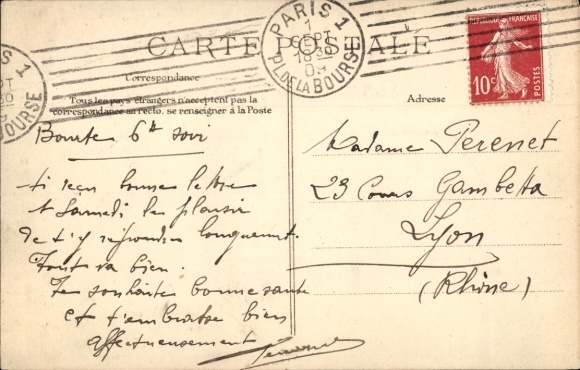 CARTE POSTALE
PARIS 1
1
SEPT
18 30
09
PL. DE LA BOURSE
RÉPUBLIQUE FRANÇAISE
10c
POSTES
S 1
BOURSE
Correspondance
Tous les pays étrangers n'acceptent pas la
correspondance au recto, se renseigner à la Poste
Adresse
6h
reçu bonne lettre
Samedi le plaisir
de t'y répondre longuement.
Tout va bien.
Te souhaite bonne santé
et t'embrasse bien
affectueusement
Madame Perenet
23 Cours Gambetta
Lyon
(Rhône)